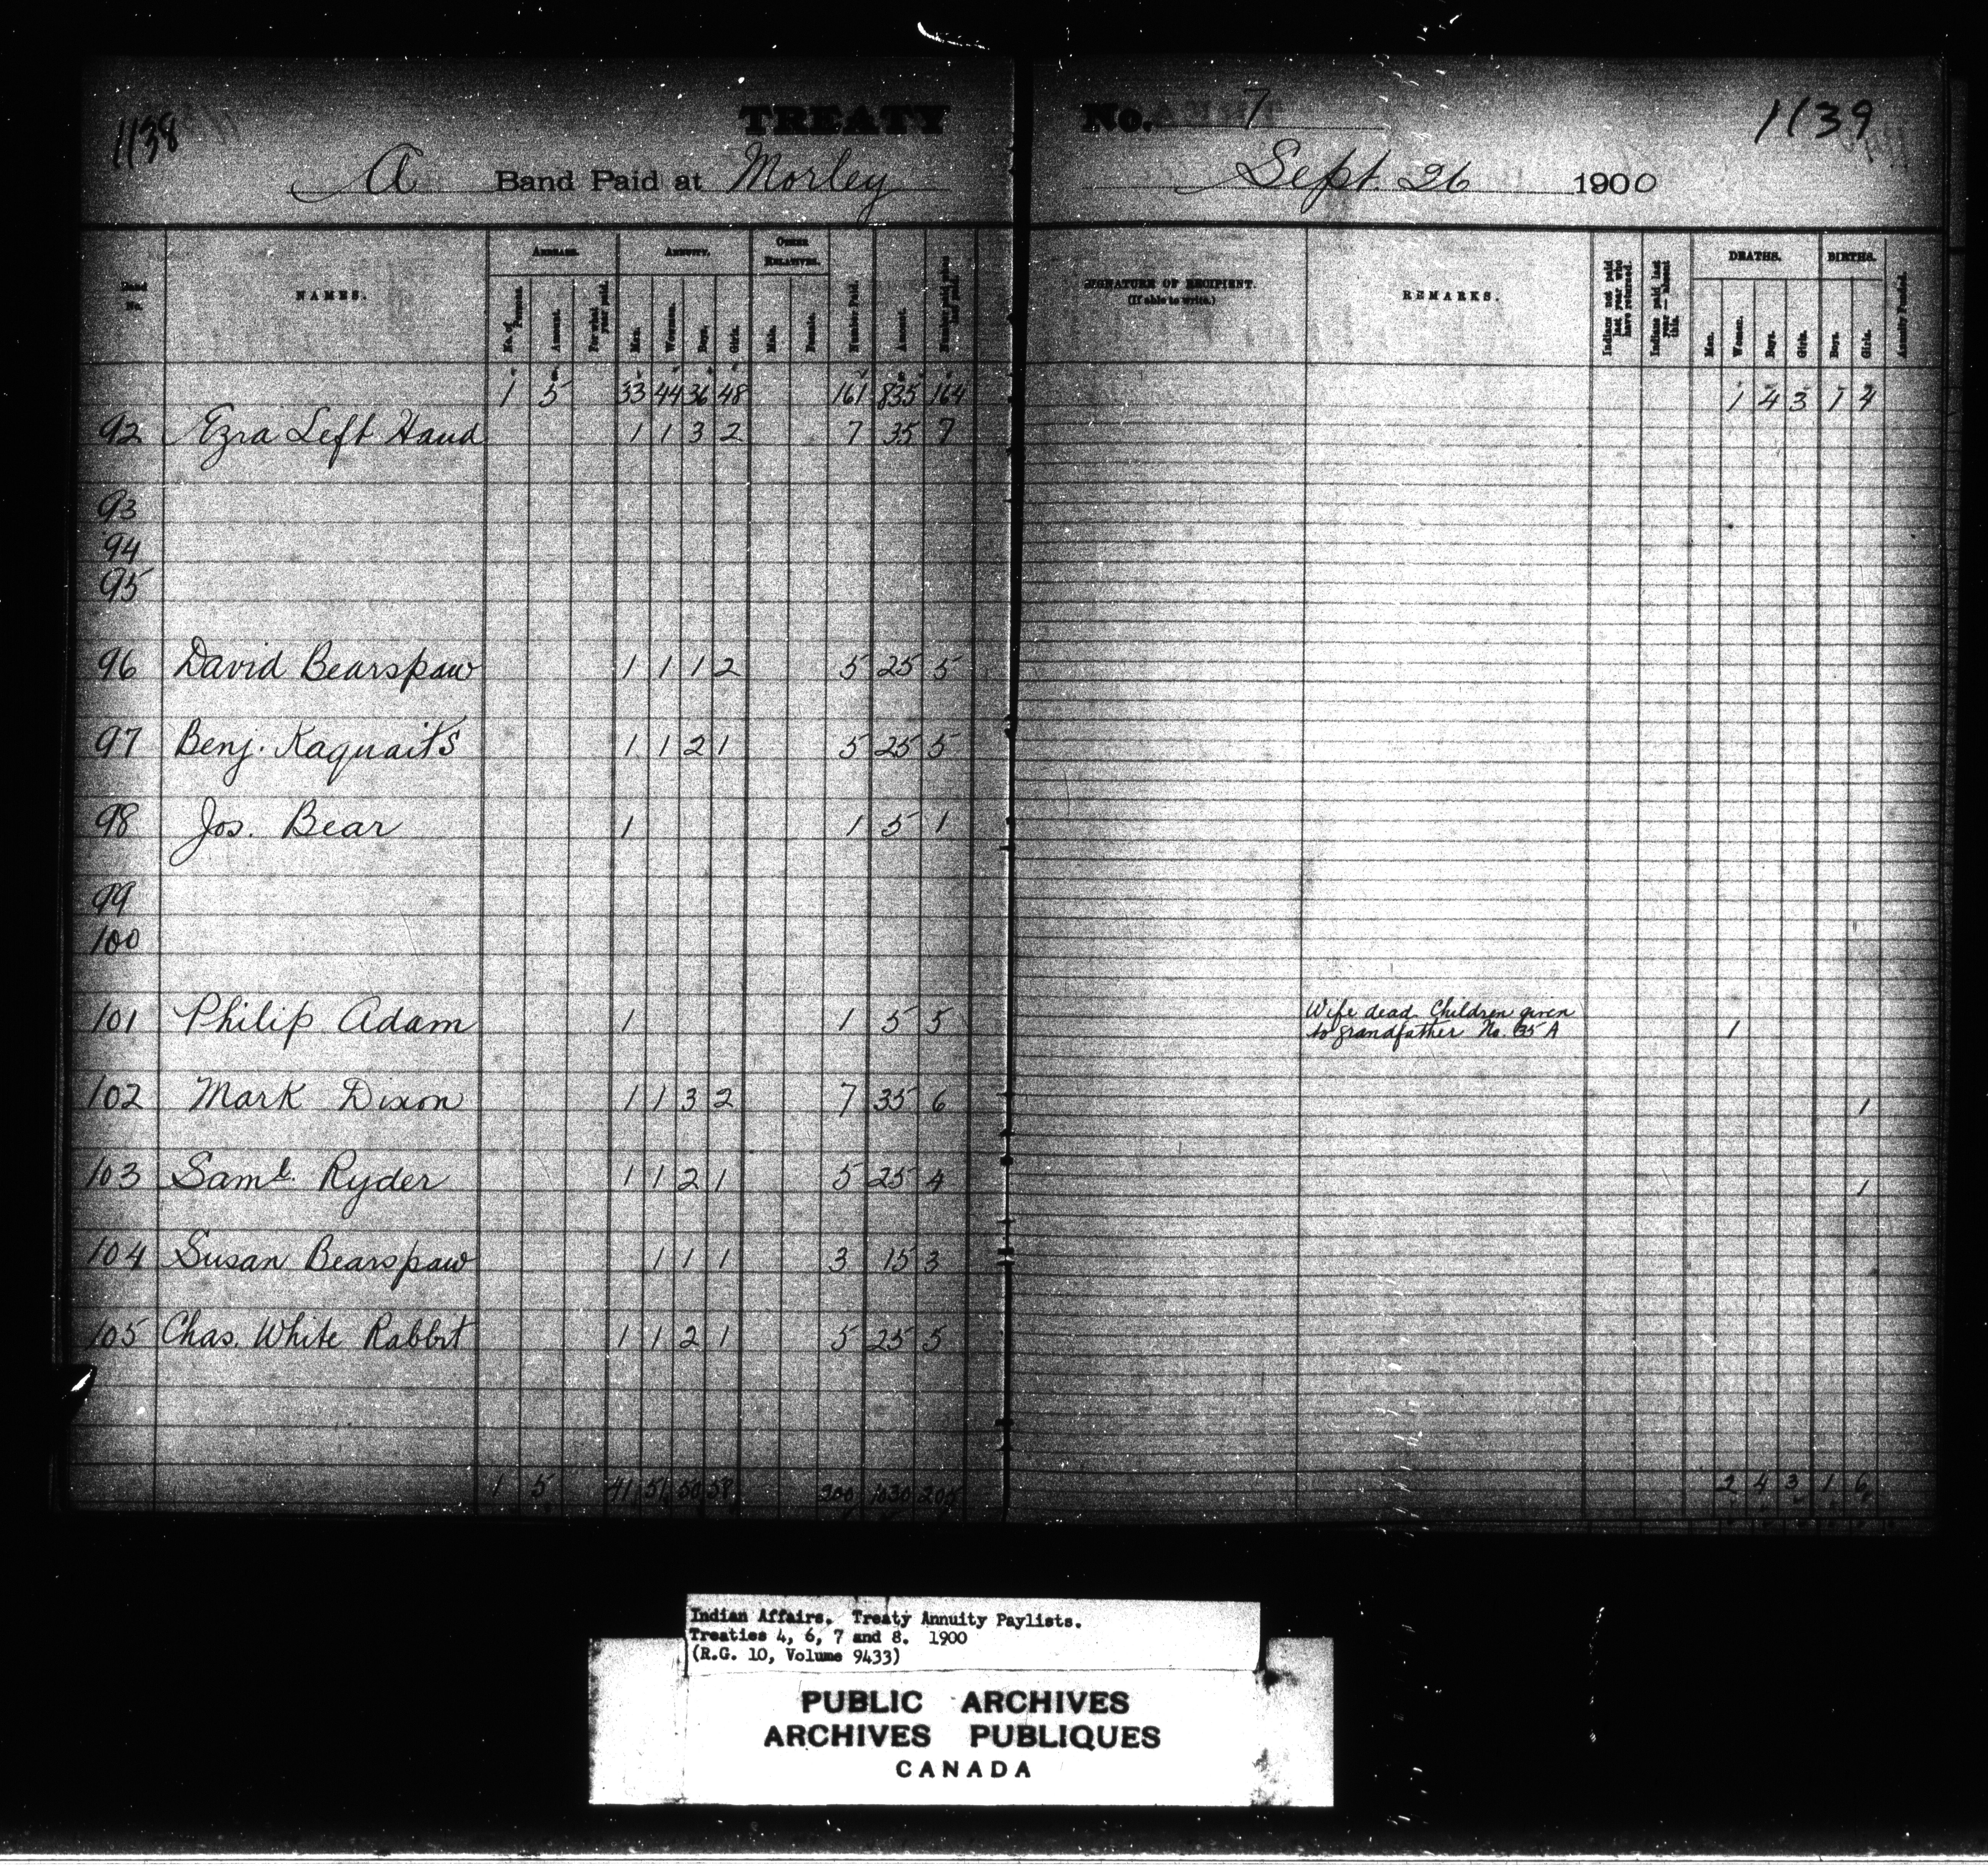 1138
TREATY No. 7
1139
A Band Paid at Morley Sept. 26 1900
Band No. NAMES. ARREARS. ANNUITY. OTHER RELATIVES. Number Paid. Amount. SIGNATURE OF RECIPIENT. (If able to write.) REMARKS. Indians not paid last year who have returned. Indians paid last year — absent this. DEATHS. BIRTHS. Annuity Funded.
No. of Persons. Amount. For what year paid. Men. Women. Boys. Girls. Male. Female. Men. Women. Boys. Girls. Boys. Girls.
1 5 33 44 36 48 161 835 164 1 4 3 1 4
92 Ezra Left Hand 1 1 3 2 7 35 7
93
94
95
96 David Bearspaw 1 1 1 2 5 25 5
97 Benj. Kaquaits 1 1 2 1 5 25 5
98 Jos. Bear 1 1 5 1
99
100
101 Philip Adam 1 1 5 5 Wife dead. Children given
to grandfather No. 35 A 1
102 Mark Dixon 1 1 3 2 7 35 6 1
103 Saml. Ryder 1 1 2 1 5 25 4 1
104 Susan Bearspaw 1 1 1 3 15 3
105 Chas. White Rabbit 1 1 2 1 5 25 5
1 5 41 51 50 58 200 1030 205 2 4 3 1 6
Indian Affairs. Treaty Annuity Paylists.
Treaties 4, 6, 7 and 8. 1900
(R.G. 10, Volume 9433)
PUBLIC ARCHIVES
ARCHIVES PUBLIQUES
CANADA